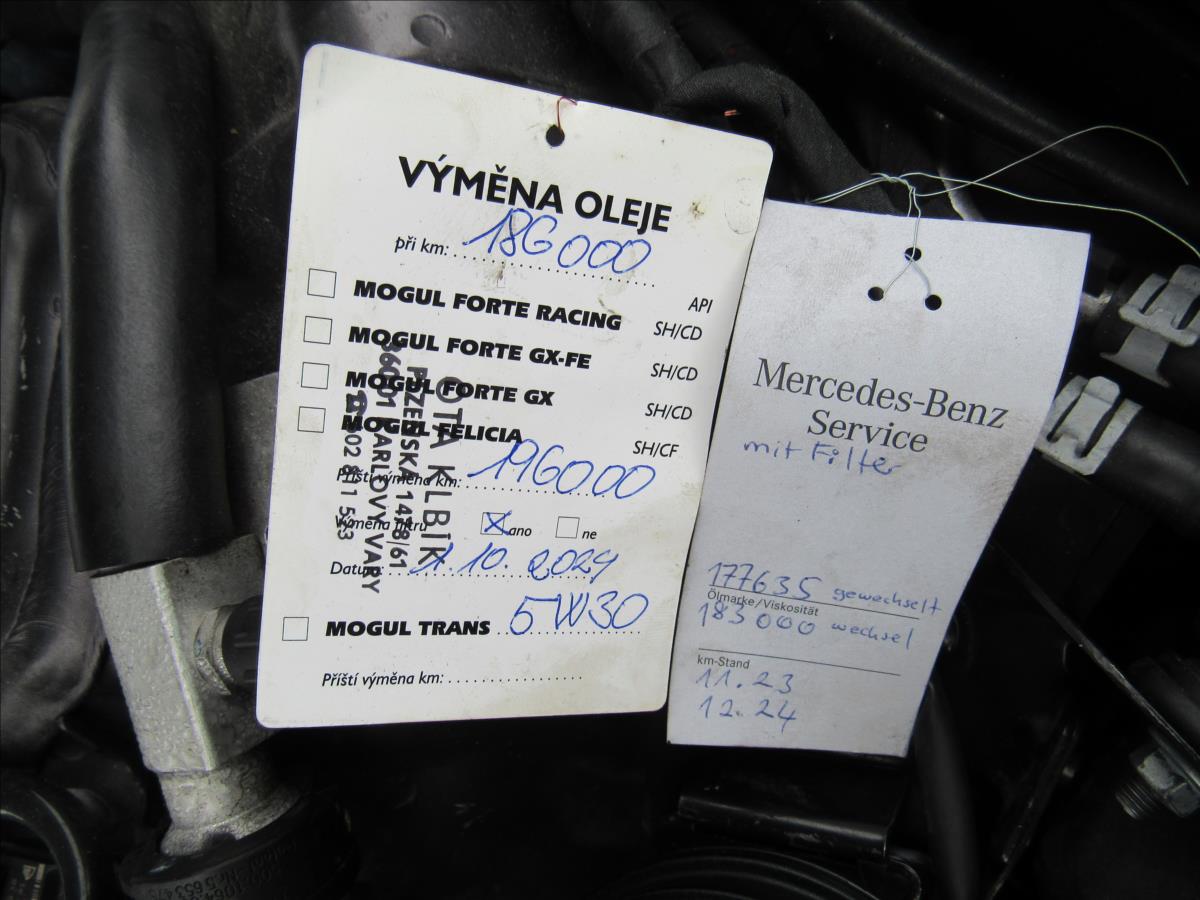 VÝMĚNA OLEJE
při km: 186000
API
MOGUL FORTE RACING SH/CD
MOGUL FORTE GX-FE SH/CD
MOGUL FORTE GX SH/CD
MOGUL FELICIA SH/CF
Příští výměna km: 196000
Výměna filtru ano ne
Datum: 1.10.2024
MOGUL TRANS 5W30
Příští výměna km:
OTA KLBÍK
PLZEŇSKÁ 1478/61
360 01 KARLOVY VARY
Mercedes-Benz
Service
mit Filter
177635 gewechselt
Ölmarke/Viskosität
183000 wechsel
km-Stand
11.23
12.24